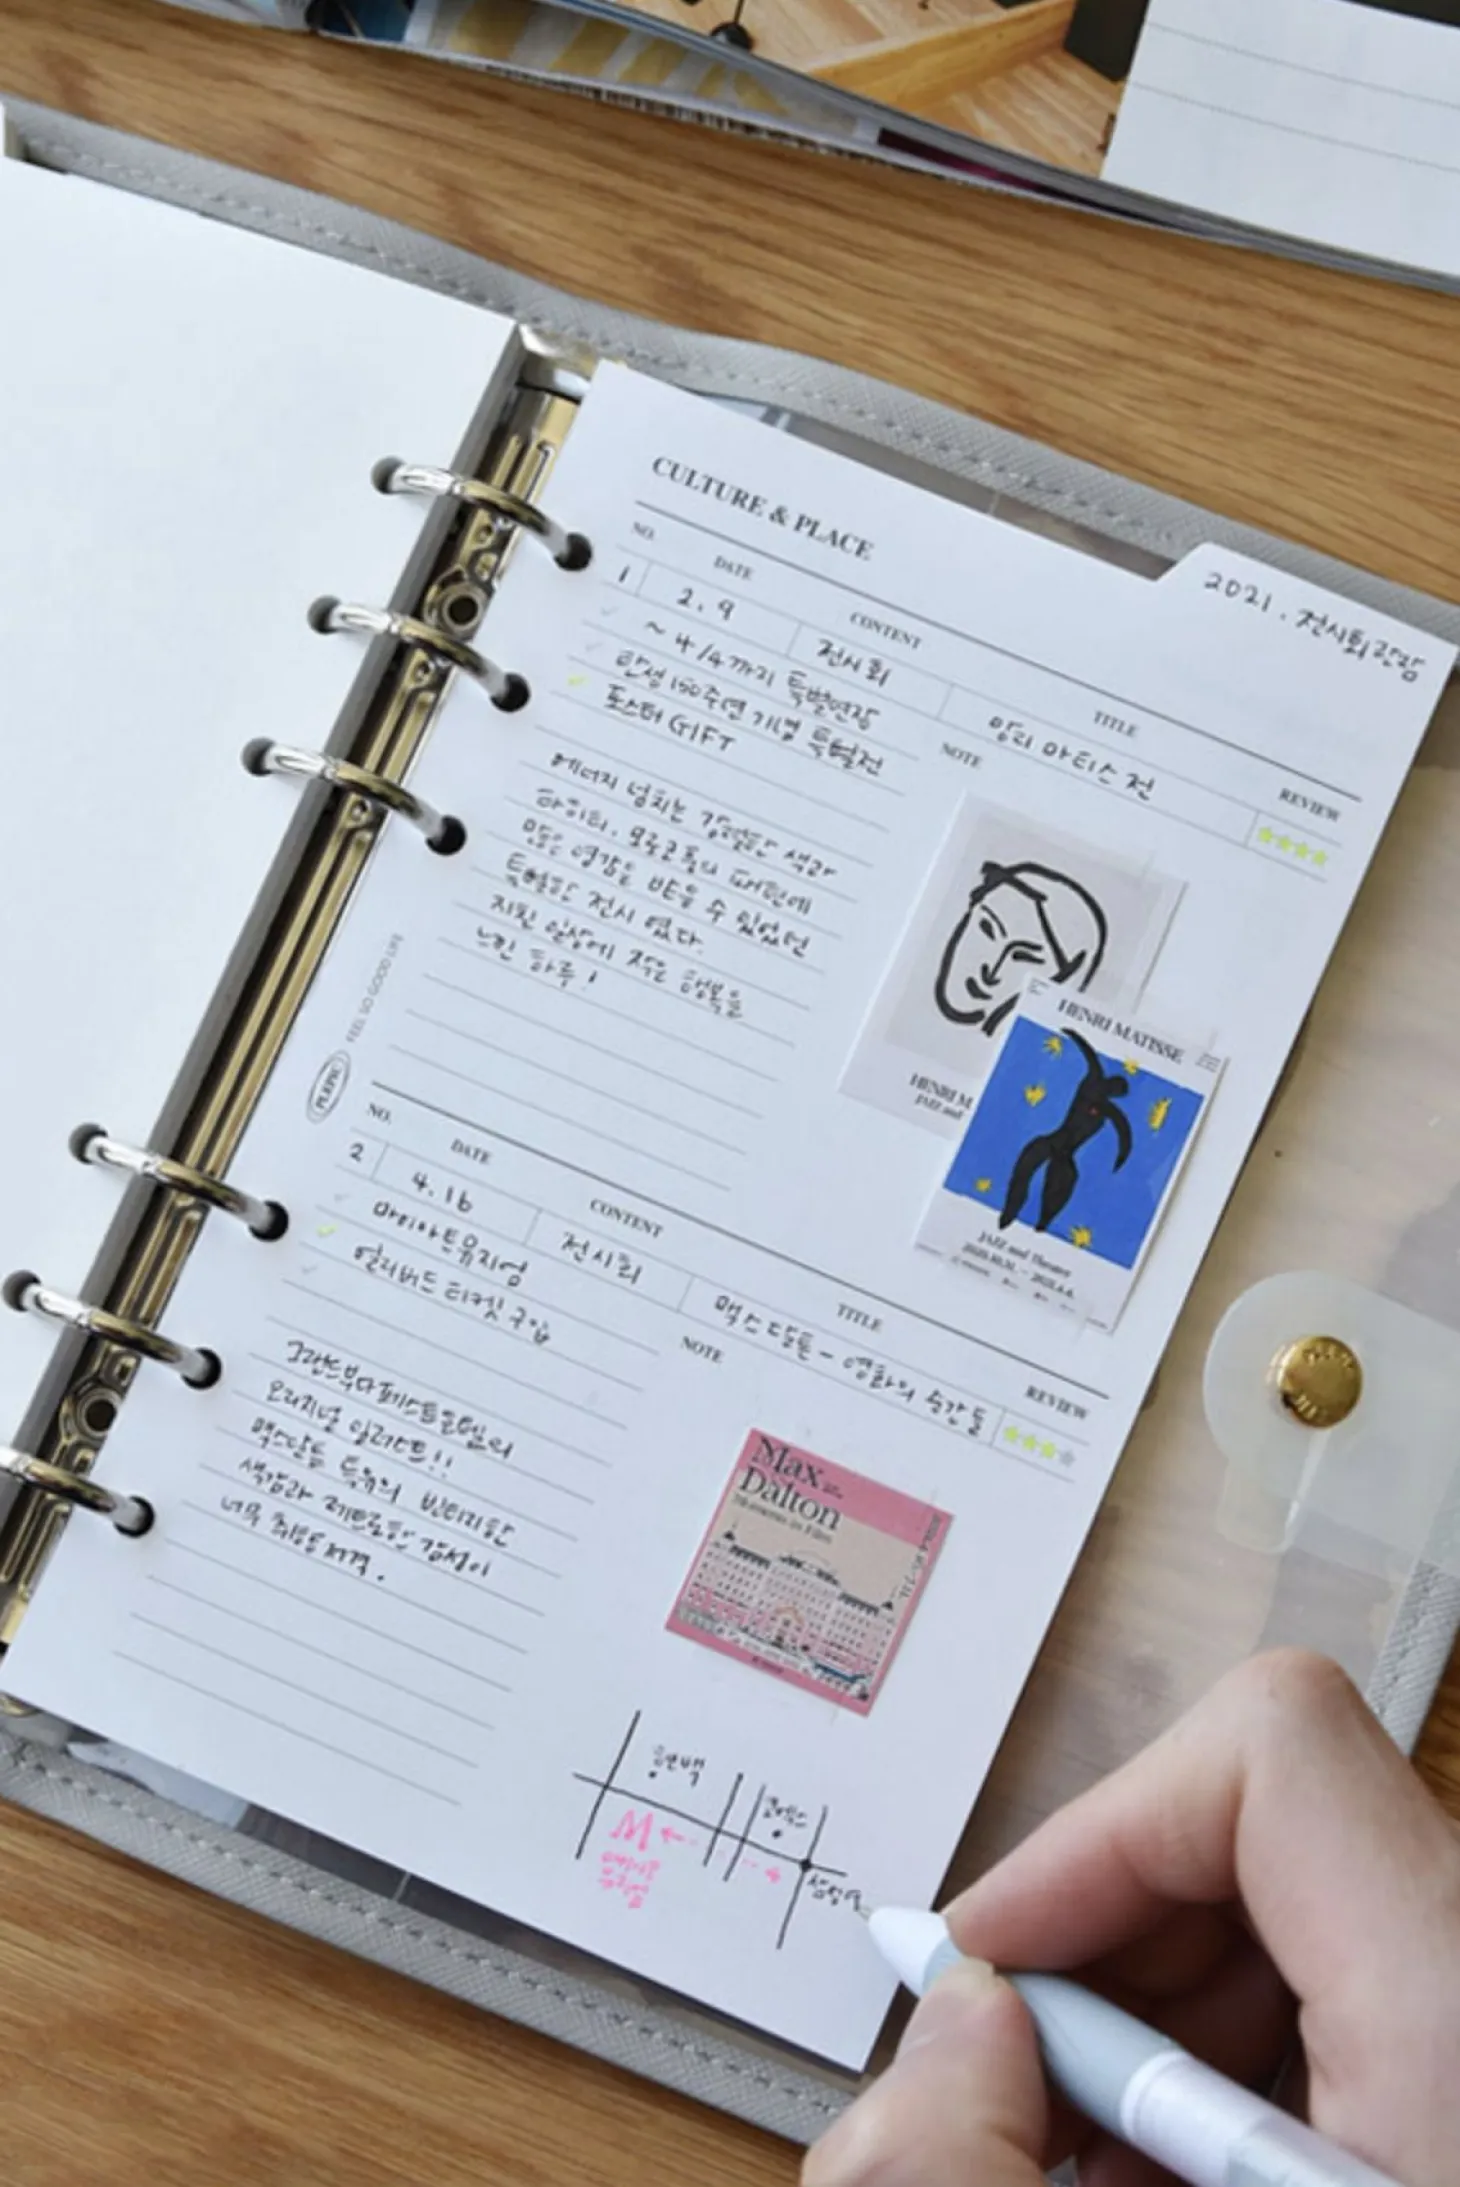 CULTURE & PLACE
2021. 전시회관람
NO. DATE CONTENT TITLE REVIEW
1 2.9 전시회 앙리 마티스 전 ★★★★
~ 4/4까지 특별연장
탄생 150주년 기념 특별전
포스터 GIFT
NOTE
에너지 넘치는 강렬한 색과
모로코풍의 패턴에
많은 영감을 받을 수 있었던
특별한 전시 였다.
지친 일상에 작은 행복을
느낀 하루!
HENRI M
JAZZ and
HENRI MATISSE
JAZZ and Theater
FEEL SO GOOD DAYS
PLEPIC
NO. DATE CONTENT TITLE REVIEW
2 4.16 전시회 맥스 달튼 - 영화의 순간들 ★★★★
마이아트뮤지엄
얼리버드 티켓 구입
NOTE
그랜드부다페스트호텔의
오리지널 일러스트!!
맥스달튼 특유의 빈티지한
색감과 레트로한 감성이
너무 취향저격.
Max
Dalton
현백
M
마이아트
뮤지엄
삼성역